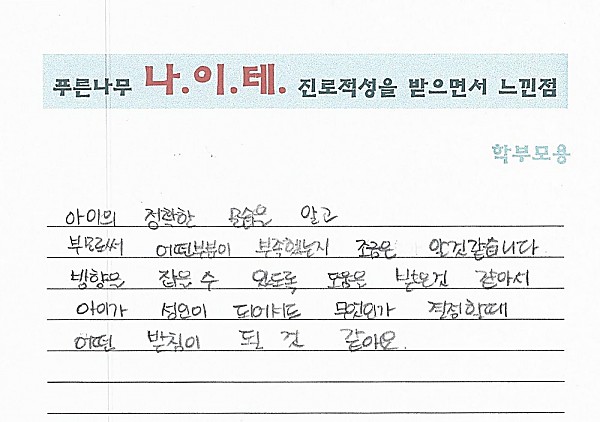 푸른나무 나.이.테. 진로적성을 받으면서 느낀점
학부모용
아이의 정확한 모습을 알고
부모로써 어떤부분이 부족했는지 조금은 안것같습니다
방향을 잡을 수 있도록 도움을 받은것 같아서
아이가 성인이 되어서도 무언가 결정할때
어떤 받침이 될 것 같아요.